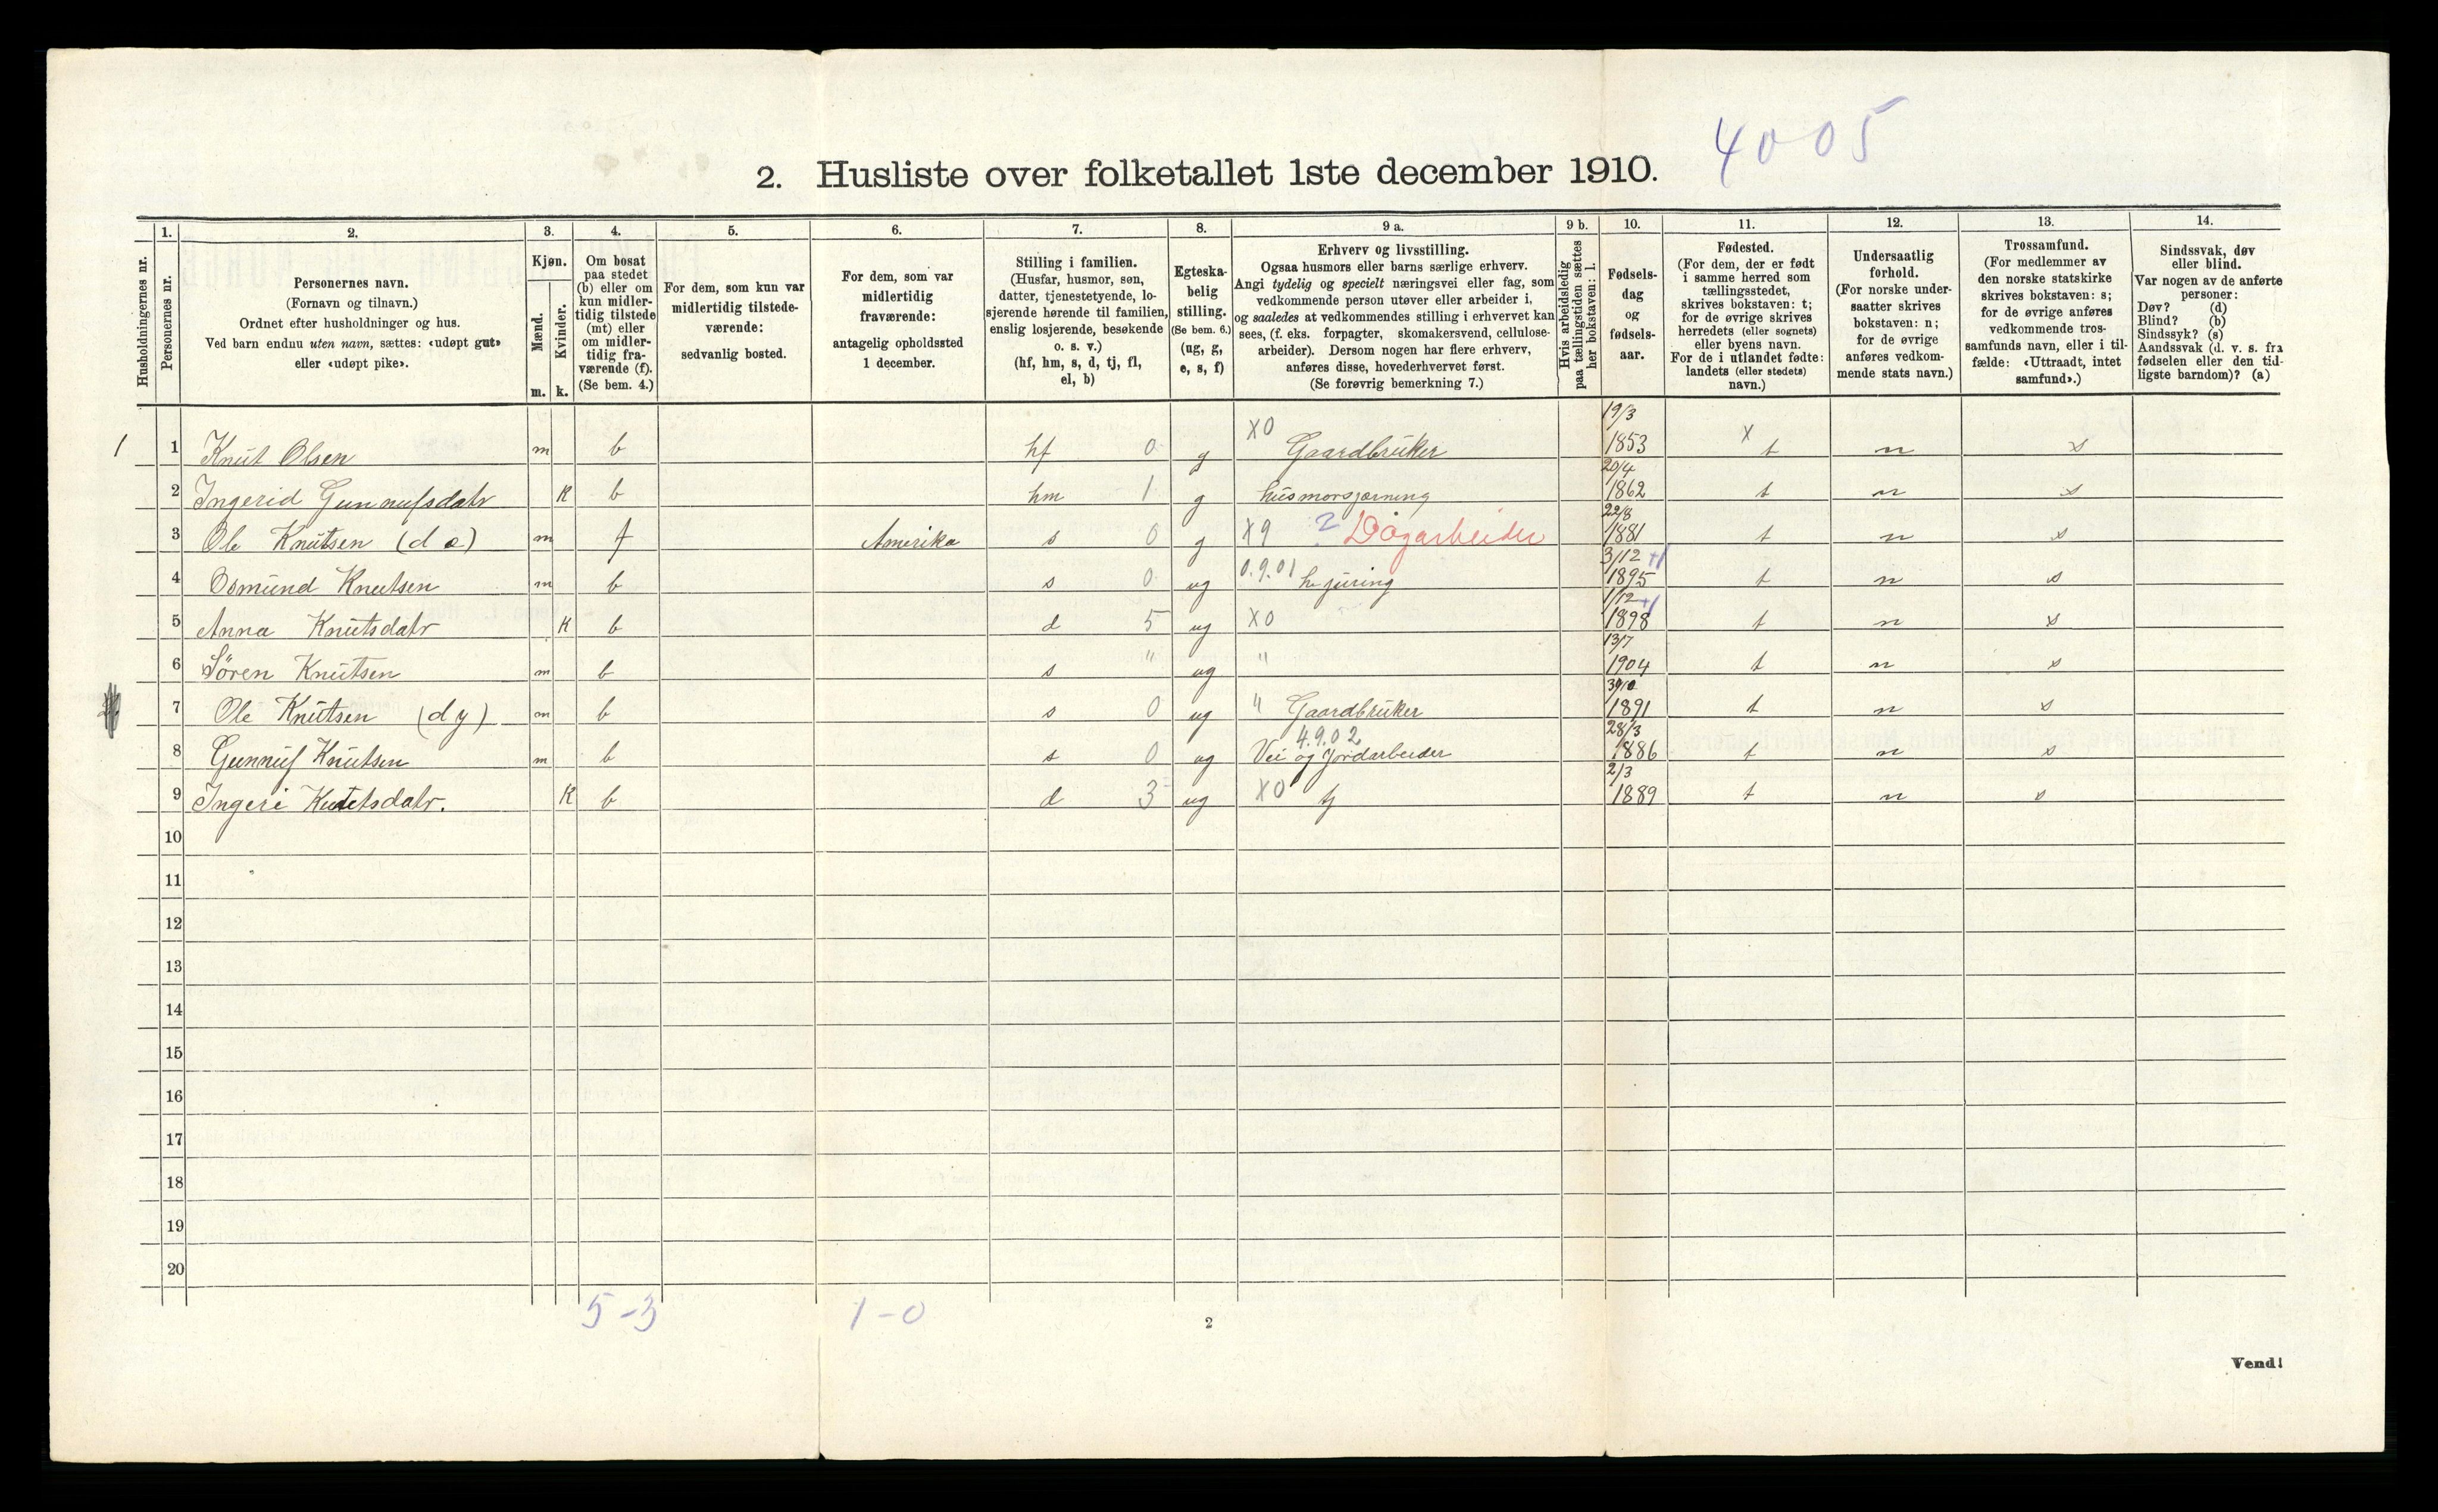 4005
2. Husliste over folketallet 1ste december 1910.
Husholdningernes nr.
1.
Personernes nr.
2.
Personernes navn.
(Fornavn og tilnavn.)
Ordnet efter husholdninger og hus.
Ved barn endnu uten navn, sættes: «udøpt gut»
eller «udøpt pike».
3.
Kjøn.
Mænd.
Kvinder.
m. k.
4.
Om bosat
paa stedet
(b) eller om
kun midler-
tidig tilstede
(mt) eller
om midler-
tidig fra-
værende (f).
(Se bem. 4.)
5.
For dem, som kun var
midlertidig tilstede-
værende:
sedvanlig bosted.
6.
For dem, som var
midlertidig
fraværende:
antagelig opholdssted
1 december.
7.
Stilling i familien.
(Husfar, husmor, søn,
datter, tjenestetyende, lo-
sjerende hørende til familien,
enslig losjerende, besøkende
o. s. v.)
(hf, hm, s, d, tj, fl,
el, b)
8.
Egteska-
belig
stilling.
(Se bem. 6.)
(ug, g,
e, s, f)
9 a.
Erhverv og livsstilling.
Ogsaa husmors eller barns særlige erhverv.
Angi tydelig og specielt næringsvei eller fag, som
vedkommende person utøver eller arbeider i,
og saaledes at vedkommendes stilling i erhvervet kan
sees, (f. eks. forpagter, skomakersvend, cellulose-
arbeider). Dersom nogen har flere erhverv,
anføres disse, hovederhvervet først.
(Se forøvrig bemerkning 7.)
9 b.
Hvis arbeidsledig
paa tællingstiden sættes
her bokstaven: l.
10.
Fødsels-
dag
og
fødsels-
aar.
11.
Fødested.
(For dem, der er født
i samme herred som
tællingsstedet,
skrives bokstaven: t;
for de øvrige skrives
herredets (eller sognets)
eller byens navn.
For de i utlandet fødte:
landets (eller stedets)
navn.)
12.
Undersaatlig
forhold.
(For norske under-
saatter skrives
bokstaven: n;
for de øvrige
anføres vedkom-
mende stats navn.)
13.
Trossamfund.
(For medlemmer av
den norske statskirke
skrives bokstaven: s;
for de øvrige anføres
vedkommende tros-
samfunds navn, eller i til-
fælde: «Uttraadt, intet
samfund».)
14.
Sindssvak, døv
eller blind.
Var nogen av de anførte
personer:
Døv? (d)
Blind? (b)
Sindssyk? (s)
Aandssvak (d. v. s. fra
fødselen eller den tid-
ligste barndom)? (a)
1 1 Knut Olsen m b hf 0 g X0 Gaardbruker 19/3 1853 X t n s
2 Ingerid Gunnufsdatr K b hm 1 g husmorsgjerning 20/4 1862 t n s
3 Ole Knutsen (d e) m f Amerika s 0 g X9 ? Dagarbeider 22/8 1881 t n s
4 Osmund Knutsen m b s 0 ug 0.9.01 hjuring 3/12 +1 1895 t n s
5 Anna Knutsdatr K b d 5 ug X0 1/12 +1 1898 t n s
6 Sören Knutsen m b s " ug " 13/7 1904 t n s
7 Ole Knutsen (d y) m b s 0 ug " Gaardbruker 30/10 1891 t n s
8 Gunnuf Knutsen m b s 0 ug 4.9.02 Vei og Jordarbeider 28/3 1886 t n s
9 Ingeri Knutsdatr. K b d 3 ug X0 tj 2/3 1889 t n s
10
11
12
13
14
15
16
17
18
19
20
5-3 1-0
2
Vend!